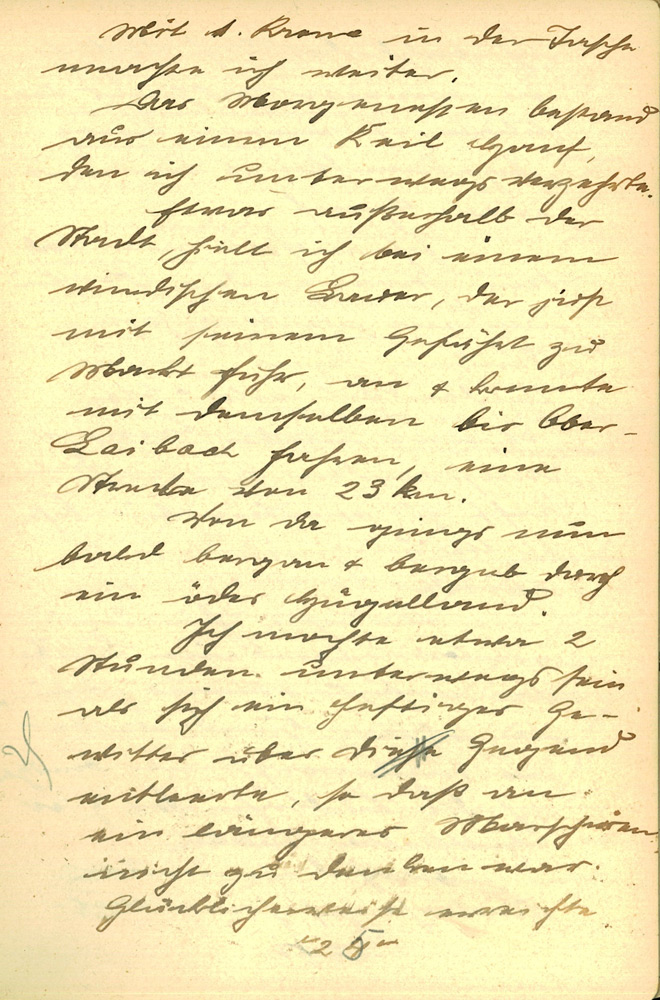 Mit 1. Krone in der Tasche
machte ich weiter.
Das Morgenessen bestand
aus einem Keil
den ich unterwegs verzehrte.
Etwas außerhalb der
Stadt, hielt ich bei einem
windischen Bauer, der just
mit seinem Gefährt zu
Markt fuhr, an & konnte
mit demselben bis Ober-
Laibach fahren, eine
Strecke von 23 km.
Von da gings nun
bald bergan & bergab durch
ein ödes Hügelland.
Ich mochte etwa 2
Stunden unterwegs sein
als sich ein heftiges Ge-
witter über diese Gegend
entleerte, so daß an
ein längeres Marschieren
nicht zu denken war.
Glücklicherweise erreichte
"25"